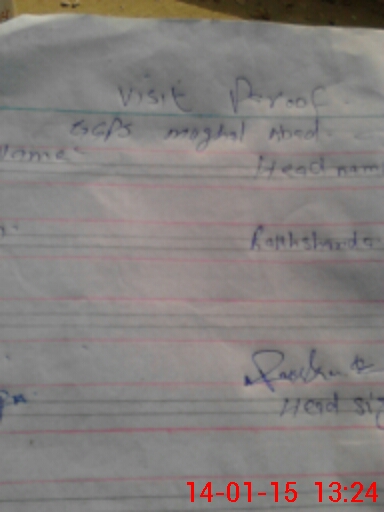 Visit Proof
GGPS moghal Abad
Name: Head nam
Rakhshanda
Head sig
14-01-15 13:24